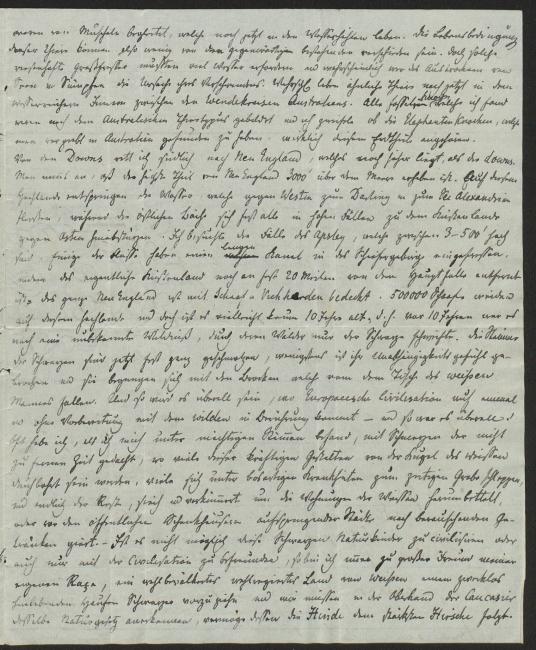 waren von Muscheln begleitet, welche noch jetzt in den Wasserlöchern leben. Die Lebensbedingung
dieser Thiere können also wenig von den gegenwärtigen bestehenden verschieden sein. Doch solche
grasfresser müssten viel Wasser erfordern und wahrscheinlich war das Austrocknen von
Seen u Sümpfen die Ursache ihres Verschwindens. Wahrscheinl. leben ähnliche Thiere noch jetzt in dem
wasserreichern Innern zwischen den Wendekreisen Australiens. Alle fossilen Knochen, welche ich fand
waren nach dem Australischen Thiertypus gebildet und ich zweifle ob die Elephantenknochen, welche
man vorgiebt in Australien gefunden zu haben wirklich diesem Erdtheil angehören.
Von den Downs ritt ich südlich nach Neu England, welches noch höher liegt, als die Downs.
Man nimmt an, dass der höchste Theil von Neu England 3000' über dem Meere erhaben ist. Auf diesem
Hochlande entspringen die Wasser, welche gegen Westen zum Darling u zum See Alexandrien
fliessen, während die östlichen Bäche sich fast alle in hohen Fällen zu dem Küstenlande
gegen Osten hinabstürzen. Ich besuchte die Fälle des Apsley, welche zwischen 3-500' hoch
sind. Einige der Flüsse haben einen langen Kanal in das Schiefergebirge eingeschnitten,
indem das eigentliche Küstenland noch an fast 20 Meilen von dem Hauptfalle entfernt
ist. Das ganze Neu England ist mit Schaaf u Viehherden bedeckt. 500000 Schaafe weiden
auf diesem Hochlande und doch ist es vielleicht kaum 10 Jahre alt, d.h. vor 10 Jahren war es
noch eine unbekannte Wildniss, durch deren Wälder nur der Schwarze schweifte. Die Stämme
der Schwarzen sind jetzt fast ganz geschmolzen, wenigstens ist ihr Unabhängigkeits gefühl ge-
brochen und sie begnügen sich mit den Brocken welche von dem Tische des weissen
Mannes fallen. Und so wird es überall sein, wo Europaeische Civilisation auf einmal
u ohne Vorbereitung mit dem Wilden in Berührung kommt – und so war es überall!
Oft habe ich, als ich mich unter mächtigen Stämmen befand, mit Schmerzen der nicht
zu fernen Zeit gedacht, wo viele dieser kräftigen Gestalten von der Kugel des Weissen
durchbohrt sein werden, viele sich unter bösartigen Krankheiten zum zeitigen Grabe schleppen,
und endlich der Rest, siech und verkümmert um die Wohnungen der Weissen herumbettelt,
oder vor den öffentlichen Schenkhäusern aufspringender Städte nach berauschenden Ge-
tränken giert. – Ist es nicht möglich diese Schwarzen Naturkinder zu civilisiren oder
auch nur mit der Civilisation zu befreunden, so bin ich immer zu grosser Freund meiner
eigenen Race, ein wohlbevölkertes wohlregiertes Land von Weissen einem zwecklos
hinlebenden Haufen Schwarzer vorzuziehn und wir müssen in der Oberhand der Caucasier
dasselbe Naturgesetz anerkennen, vermöge dessen die Hinde dem stärksten Hirsche folgt.